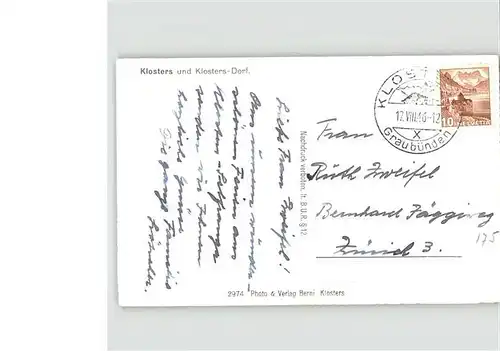 Klosters und Klosters-Dorf.
Liebe Frau Zweifel!
Von unseren wunder-
schönen Ferien aus
Klosters-
senden wir Ihnen
herzliche Grüsse
Die ganze Familie
Nachdruck verboten. lt. B.U.R. § 12.
2974 Photo & Verlag Berni Klosters
KLOSTERS
17.VIII.46-12
X
Graubünden
10 HELVETIA
Frau
Ruth Zweifel
Bernhard Jäggiweg
175
Zürich 3.